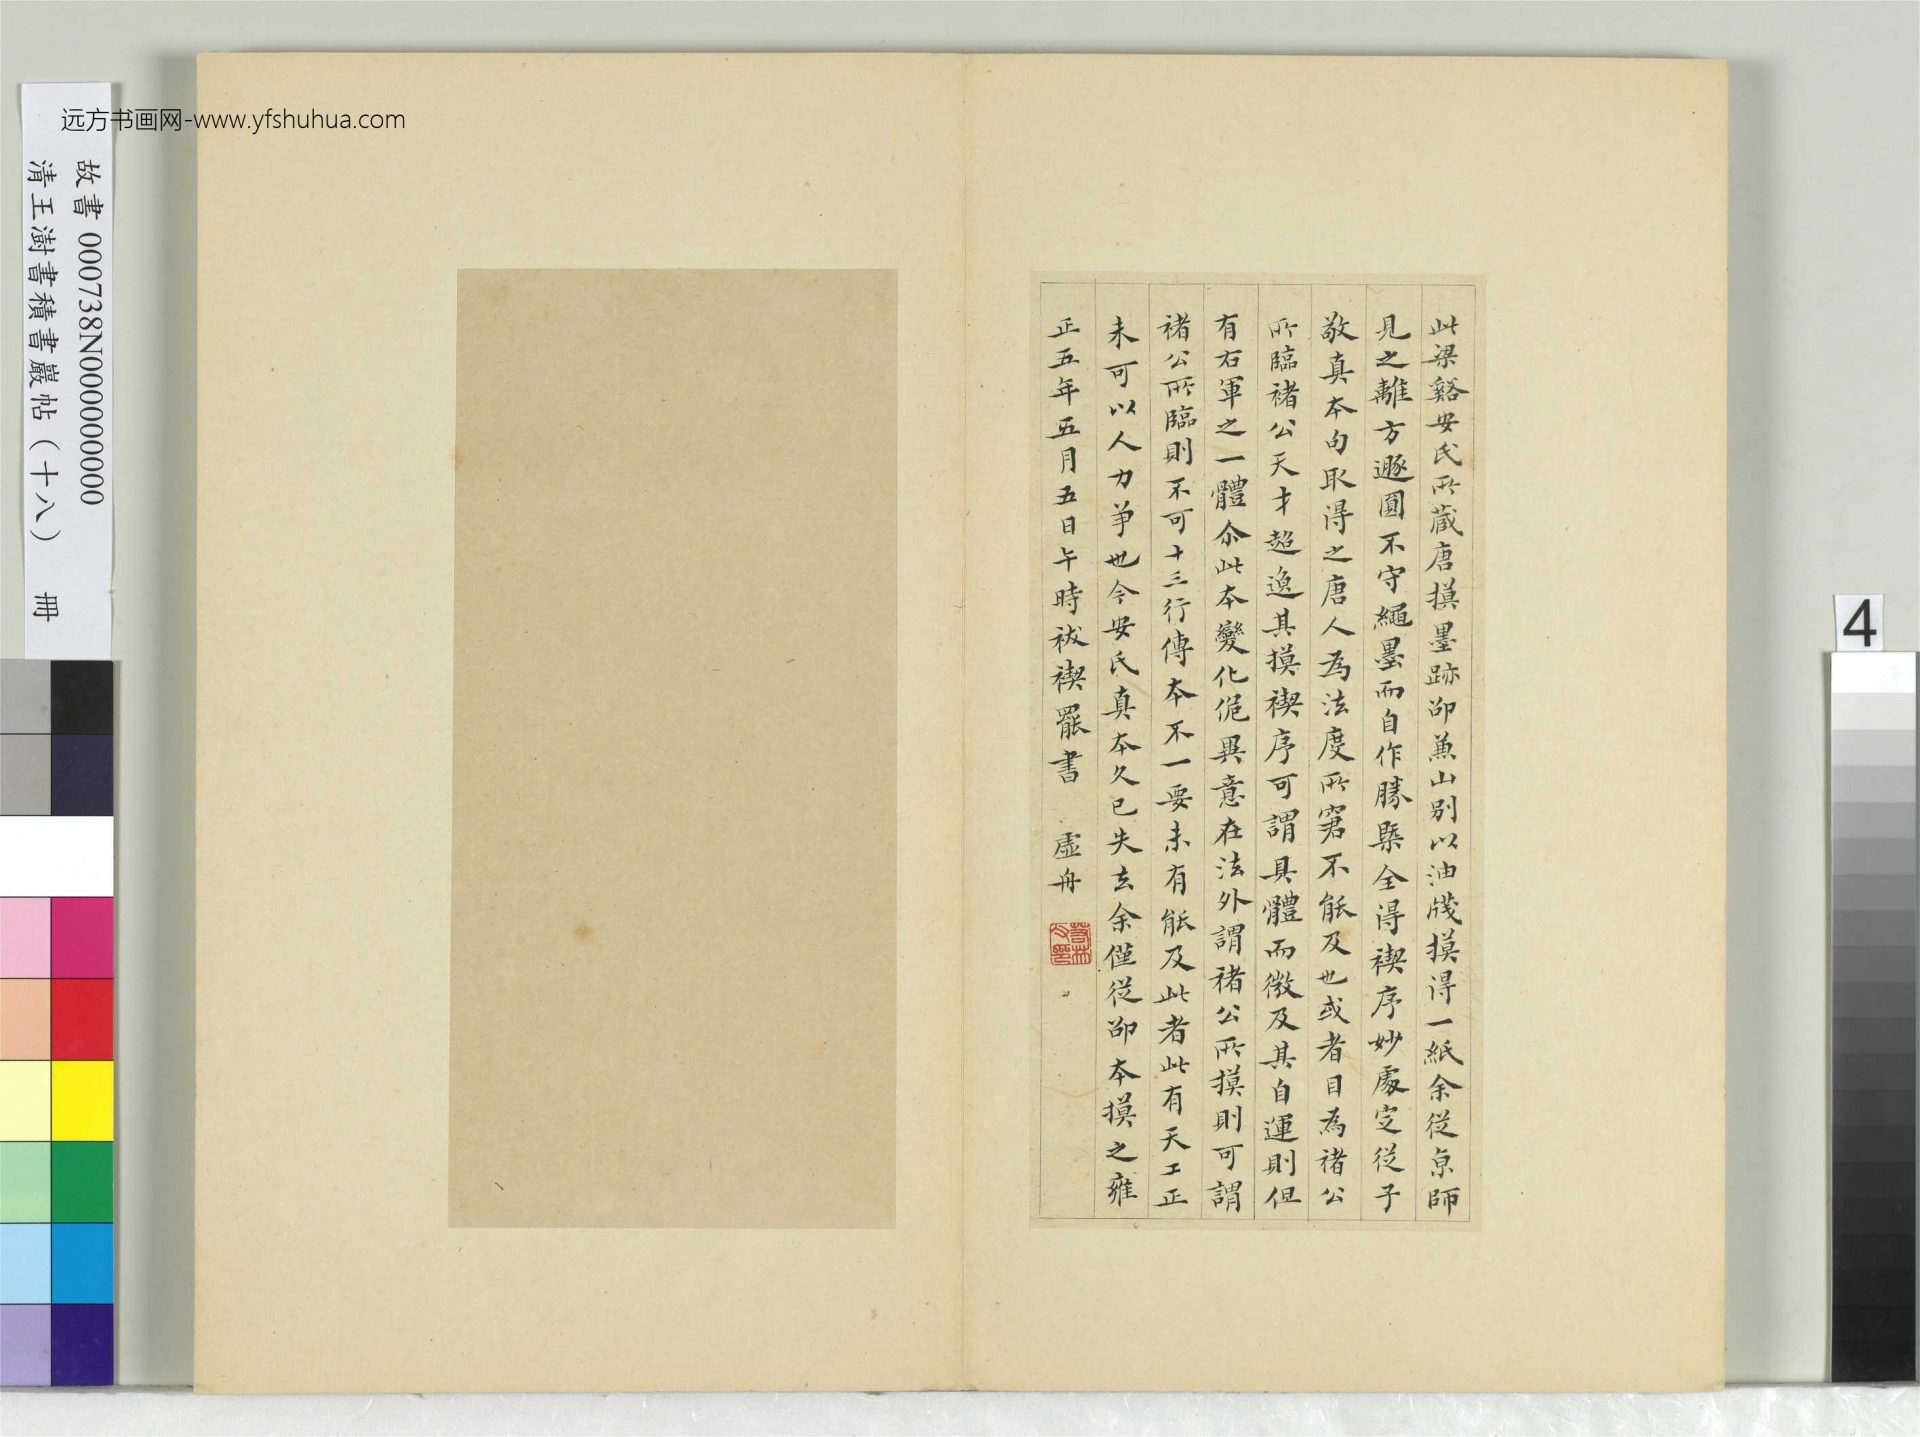 远方书画网-www.yfshuhua.com
故書 000738N000000000
清王澍書積書巖帖（十八） 冊
4
此梁谿安氏所藏唐摸墨跡邵蕉山別以油牋摸得一紙余從京師
見之離方遯圓不守繩墨而自作勝槩全得禊序妙處定從子
敬真本句取得之唐人為法度所窘不能及也或者目為褚公
所臨褚公天才超逸其摸禊序可謂具體而微及其自運則但
有右軍之一體余此本變化佹異意在法外謂褚公所摸則可謂
褚公所臨則不可十三行傳本不一要未有能及此者此有天工正
未可以人力爭也今安氏真本久已失去余僅從邵本摸之雍
正五年五月五日午時祓禊罷書 虛舟